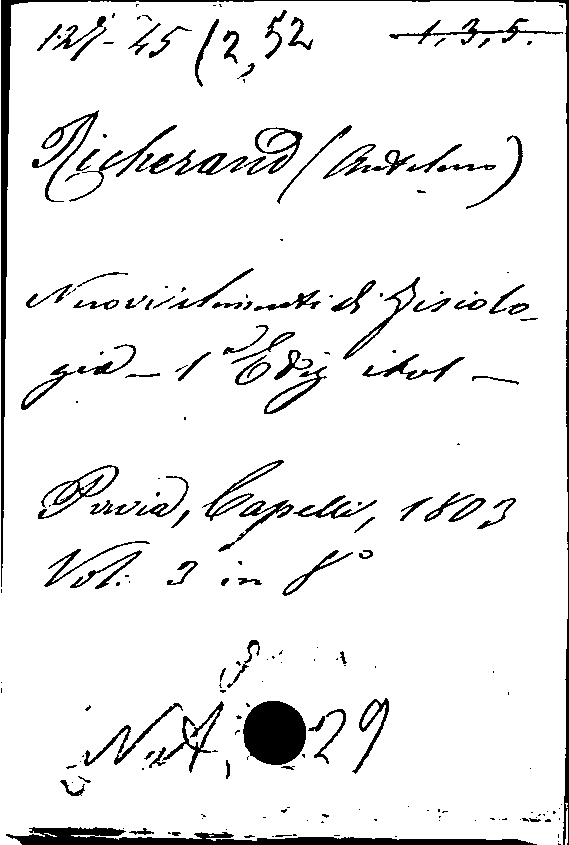 127-45 (2,52 1,3,5.
Richerand (Antelmo)
Nuovi elementi di Fisiolo-
gia - 1a Ediz ital -
Pavia, Capelli, 1803
Vol. 3 in 8°
Nat, 29